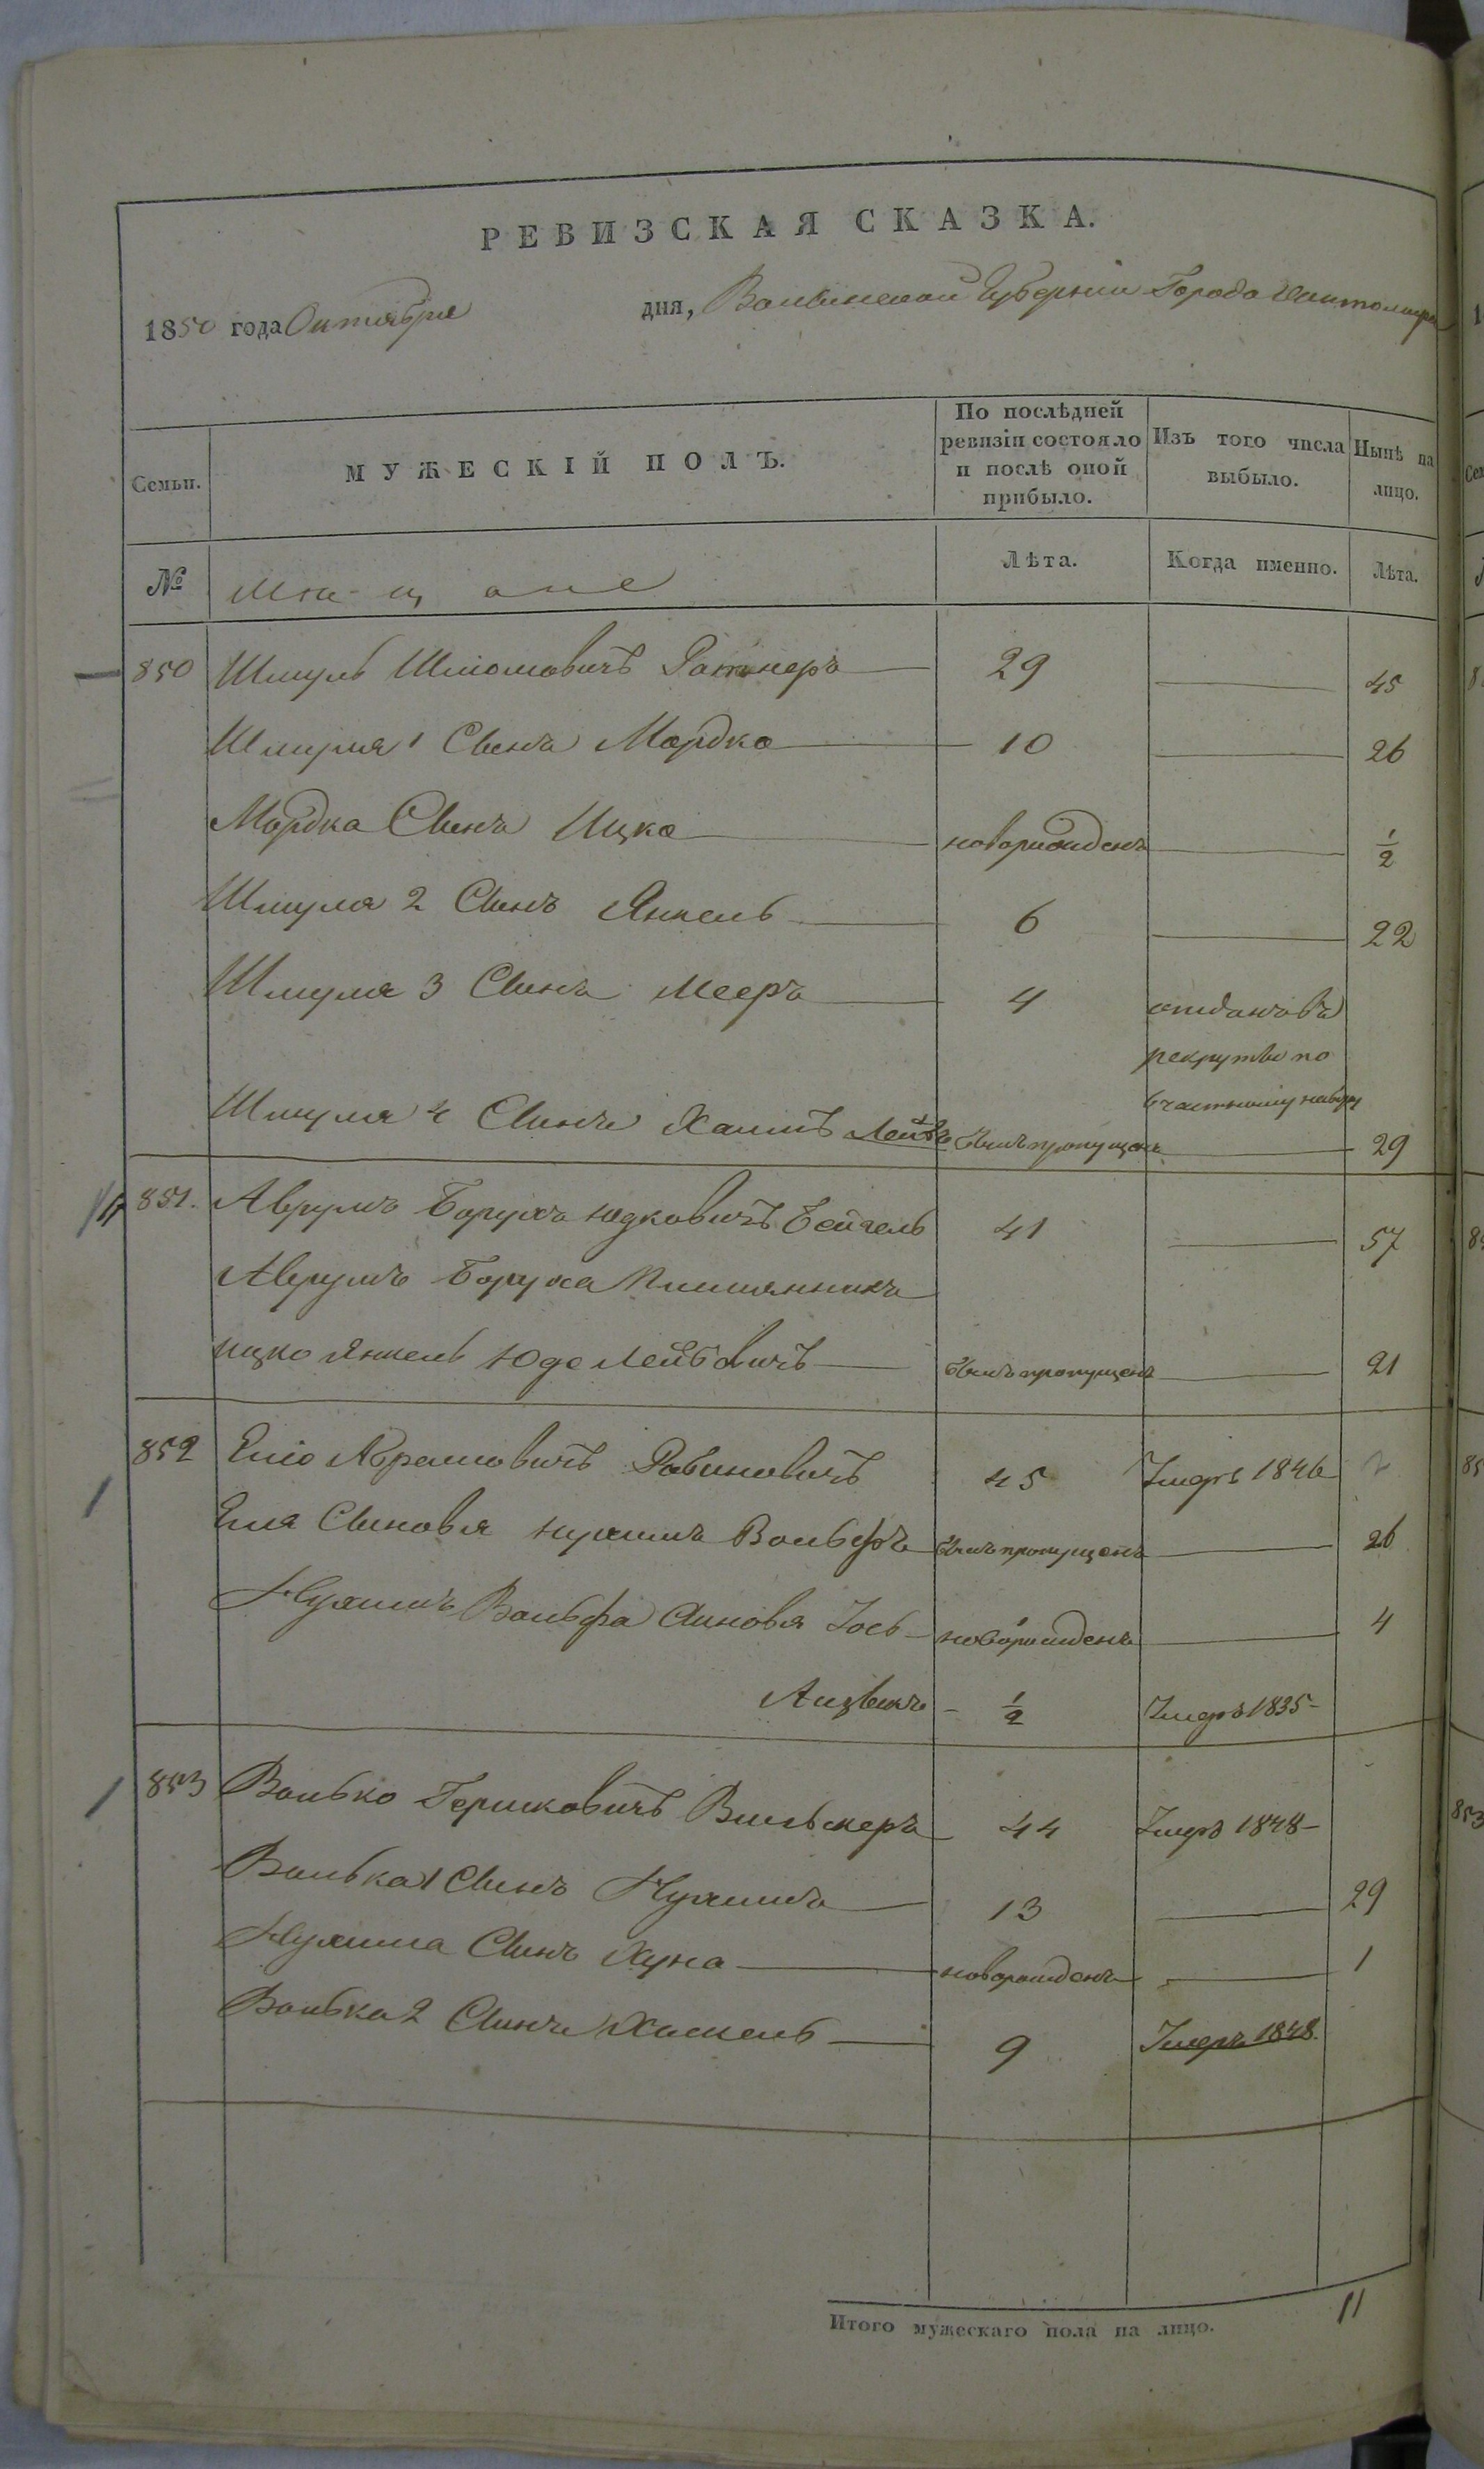 РЕВИЗСКАЯ СКАЗКА.
1850 года Октября дня, Волынской Губернии Города Житомира
Семьи. МУЖЕСКІЙ ПОЛЪ. По послѣдней ревизіи состояло и послѣ оной прибыло. Изъ того числа выбыло. Нынѣ на лицо.
№ Мѣщане Лѣта. Когда именно. Лѣта.
850 Шмуль Шлiомовичъ Ратнеръ 29 45
Шмуля 1 Сынъ Мордко 10 26
Мордка Сынъ Ицко новорожденъ 1/2
Шмуля 2 Сынъ Янкель 6 22
Шмуля 3 Сынъ Мееръ 4 отданъ въ
рекруты по
6 частному набору
Шмуля 4 Сынъ Хаимъ Лейбъ былъ пропущенъ 29
851. Аврумъ Борухъ Юдковичъ Бейгель 41 57
Аврумъ Боруха племянникъ
Ицко Янкель Юдо Лейбовичъ былъ пропущенъ 21
852 Еліо Абрамовичъ Рабиновичъ 45 Умеръ 1846
Еля Сыновья Нухимъ Вольфъ былъ пропущенъ 26
Нухимъ Вольфа Сыновья Іось новорожденъ 4
Айзыкъ 1/2 Умеръ 1835
853 Волько Гершковичъ Вильскеръ 44 Умеръ 1848
Волька 1 Сынъ Нухимъ 13 29
Нухима Сынъ Хуна новорожденъ 1
Волька 2 Сынъ Хаскель 9 Умеръ 1848.
Итого мужескаго пола на лицо. 11